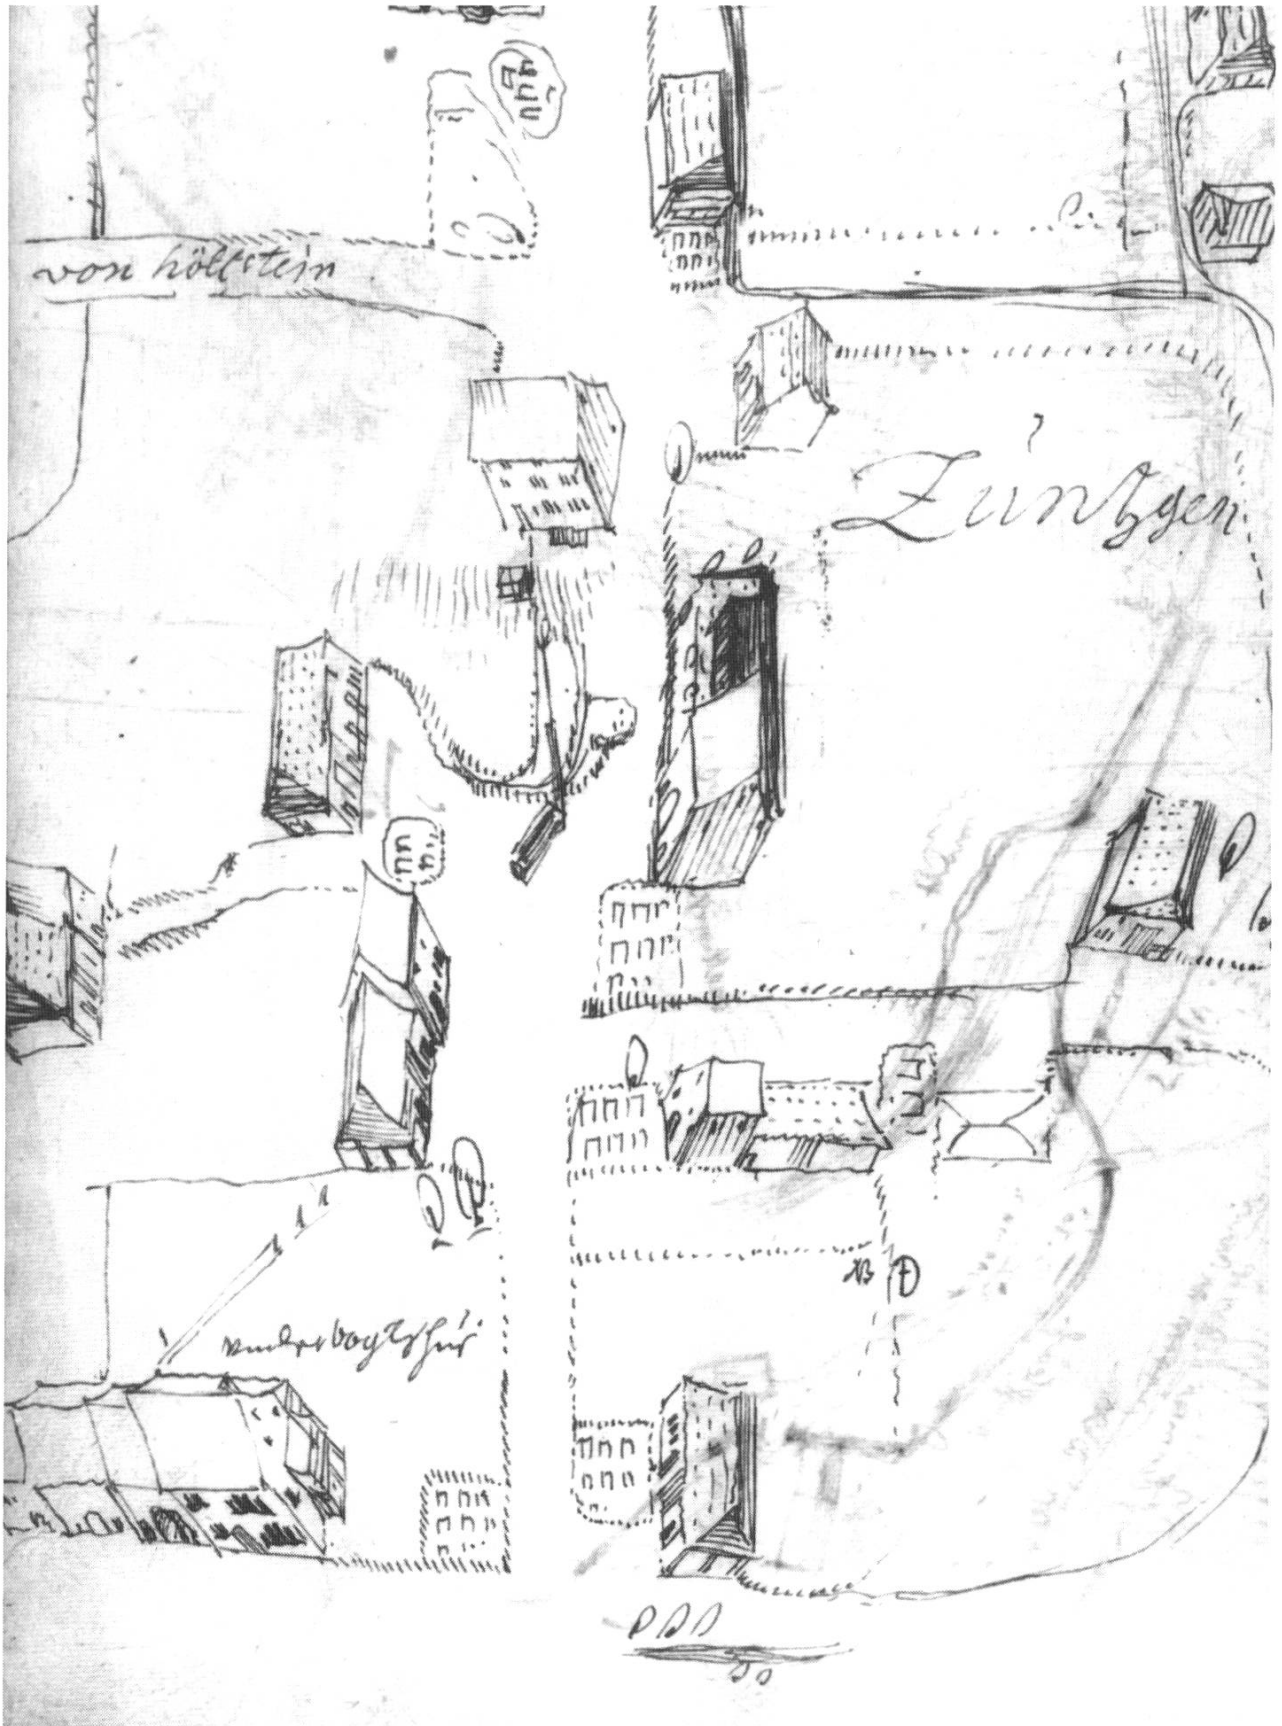 von höllstein
Zùntzgen
undervogtshùs